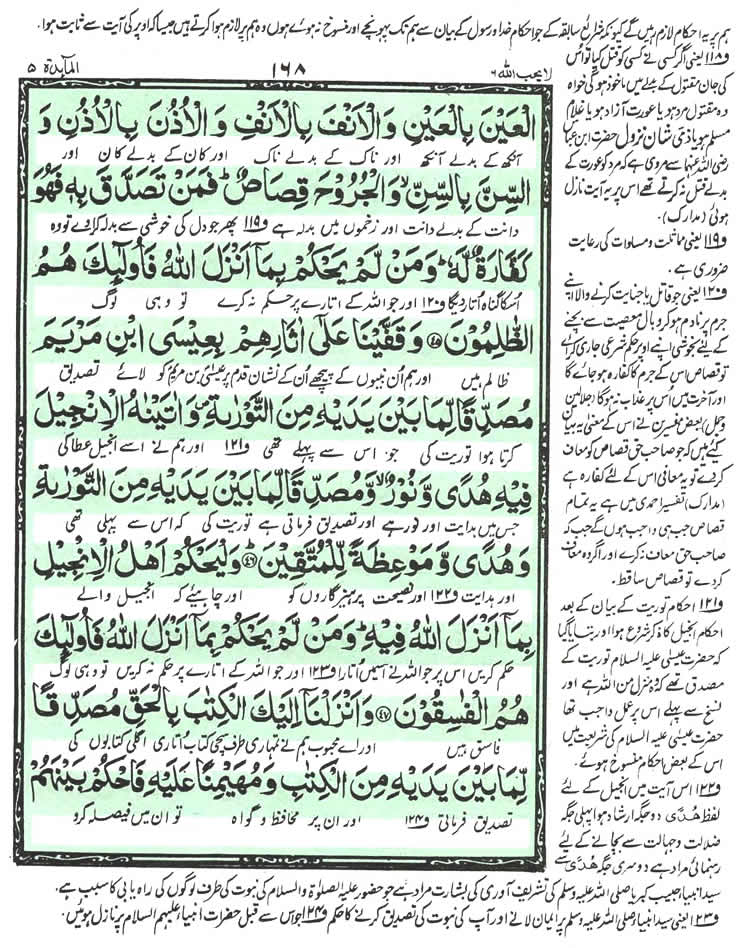 ہم پر یہ احکام لازم رہیں گے کیونکہ شرائع سابقہ کے جو احکام خدا و رسول کے بیان سے ہم تک پہونچے اور منسوخ نہ ہوئے ہوں وہ ہم پر لازم ہوا کرتے ہیں جیسا کہ اوپر کی آیت سے ثابت ہوا۔
المآئدۃ ۵
۱۶۸
لا یحب اللہ ۶
الْعَيْنَ بِالْعَيْنِ وَالْاَنْفَ بِالْاَنْفِ وَالْاُذُنَ بِالْاُذُنِ وَ
آنکھ کے بدلے آنکھ اور ناک کے بدلے ناک اور کان کے بدلے کان اور
السِّنَّ بِالسِّنِّ ۙ وَالْجُرُوْحَ قِصَاصٌ ؕ فَمَنْ تَصَدَّقَ بِهٖ فَهُوَ
دانت کے بدلے دانت اور زخموں میں بدلہ ہے و۱۱۹ پھر جو دل کی خوشی سے بدلہ کراوے تو وہ
كَفَّارَةٌ لَّهٗ ؕ وَمَنْ لَّمْ يَحْكُمْ بِمَاۤ اَنْزَلَ اللّٰهُ فَاُولٰٓئِكَ هُمُ
اس کا گناہ اتار دیگا و۱۲۰ اور جو اللہ کے اتارے پر حکم نہ کرے تو وہی لوگ
الظّٰلِمُوْنَ ﴿۴۵﴾ وَقَفَّيْنَا عَلٰۤى اٰثَارِهِمْ بِعِيْسَى ابْنِ مَرْيَمَ
ظالم ہیں اور ہم ان نبیوں کے پیچھے ان کے نشان قدم پر عیسیٰ بن مریم کو لائے تصدیق
مُصَدِّقًا لِّمَا بَيْنَ يَدَيْهِ مِنَ التَّوْرٰىةِ ۪ وَاٰتَيْنٰهُ الْاِنْجِيْلَ
کرتا ہوا توریت کی جو اس سے پہلے تھی و۱۲۱ اور ہم نے اسے انجیل عطا کی
فِيْهِ هُدًى وَّنُوْرٌ ۙ وَّمُصَدِّقًا لِّمَا بَيْنَ يَدَيْهِ مِنَ التَّوْرٰىةِ
جس میں ہدایت اور نور ہے اور تصدیق فرماتی ہے توریت کی کہ اس سے پہلی تھی
وَهُدًى وَّمَوْعِظَةً لِّلْمُتَّقِيْنَ ﴿۴۶﴾ وَلْيَحْكُمْ اَهْلُ الْاِنْجِيْلِ
اور ہدایت و۱۲۲ اور نصیحت پرہیزگاروں کو اور چاہئے کہ انجیل والے
بِمَاۤ اَنْزَلَ اللّٰهُ فِيْهِ ؕ وَمَنْ لَّمْ يَحْكُمْ بِمَاۤ اَنْزَلَ اللّٰهُ فَاُولٰٓئِكَ
حکم کریں اس پر جو اللہ نے اس میں اتارا و۱۲۳ اور جو اللہ کے اتارے پر حکم نہ کریں تو وہی لوگ
هُمُ الْفٰسِقُوْنَ ﴿۴۷﴾ وَاَنْزَلْنَاۤ اِلَيْكَ الْكِتٰبَ بِالْحَقِّ مُصَدِّقًا
فاسق ہیں اور اے محبوب ہم نے تمہاری طرف سچی کتاب اتاری اگلی کتابوں کی
لِّمَا بَيْنَ يَدَيْهِ مِنَ الْكِتٰبِ وَمُهَيْمِنًا عَلَيْهِ فَاحْكُمْ بَيْنَهُمْ
تصدیق فرماتی و۱۲۴ اور ان پر محافظ و گواہ تو ان میں فیصلہ کرو
و۱۱۸ یعنی اگر کسی نے کسی کو قتل کیا تو اس
کی جان مقتول کے بدلے میں ماخوذ ہوگی خواہ
وہ مقتول مرد ہو یا عورت آزاد ہو یا غلام
مسلم ہو یا ذمی شان نزول حضرت ابن عباس
رضی اللہ عنہما سے مروی ہے کہ مرد کو عورت کے
بدلے قتل نہ کرتے تھے اس پر یہ آیت نازل
ہوئی (مدارک)۔
و۱۱۹ یعنی مماثلت و مساوات کی رعایت
ضروری ہے۔
و۱۲۰ یعنی جو قاتل یا جنایت کرنے والا اپنے
جرم پر نادم ہو کر وبال معصیت سے بچنے
کے لئے بخوشی اپنے اوپر حکم شرعی جاری کرائے
تو قصاص اس کے جرم کا کفارہ ہو جائے گا
اور آخرت میں اس پر عذاب نہ ہوگا (جلالین
و جمل) بعض مفسرین نے اس کے معنی یہ بیان
کئے ہیں کہ جو صاحب حق قصاص کو معاف
کردے تو یہ معافی اس کے لئے کفارہ ہے
(مدارک) تفسیر احمدی میں ہے یہ تمام
قصاص جب ہی واجب ہوں گے جب کہ
صاحب حق معاف نہ کرے اور اگر وہ معاف
کردے تو قصاص ساقط۔
و۱۲۱ احکام توریت کے بیان کے بعد
احکام انجیل کا ذکر شروع ہوا اور بتایا گیا
کہ حضرت عیسیٰ علیہ السلام توریت کے
مصدق تھے کہ وہ منزل من اللہ ہے اور
نسخ سے پہلے اس پر عمل واجب تھا
حضرت عیسیٰ علیہ السلام کی شریعت میں
اس کے بعض احکام منسوخ ہوئے۔
و۱۲۲ اس آیت میں انجیل کے لئے
لفظ هُدًى دو جگہ ارشاد ہوا پہلی جگہ
ضلالت و جہالت سے بچانے کے لئے
رہنمائی مراد ہے دوسری جگہ هُدًى سے
سید انبیاء حبیب کبریا صلی اللہ علیہ وسلم کی تشریف آوری کی بشارت مراد ہے جو حضور علیہ الصلوٰۃ والسلام کی نبوت کی طرف لوگوں کی راہ یابی کا سبب ہے۔
و۱۲۳ یعنی سید انبیاء صلی اللہ علیہ وسلم پر ایمان لانے اور آپ کی نبوت کی تصدیق کرنے کا حکم و۱۲۴ جو اس سے قبل حضرات انبیاء علیہم السلام پر نازل ہوئیں۔